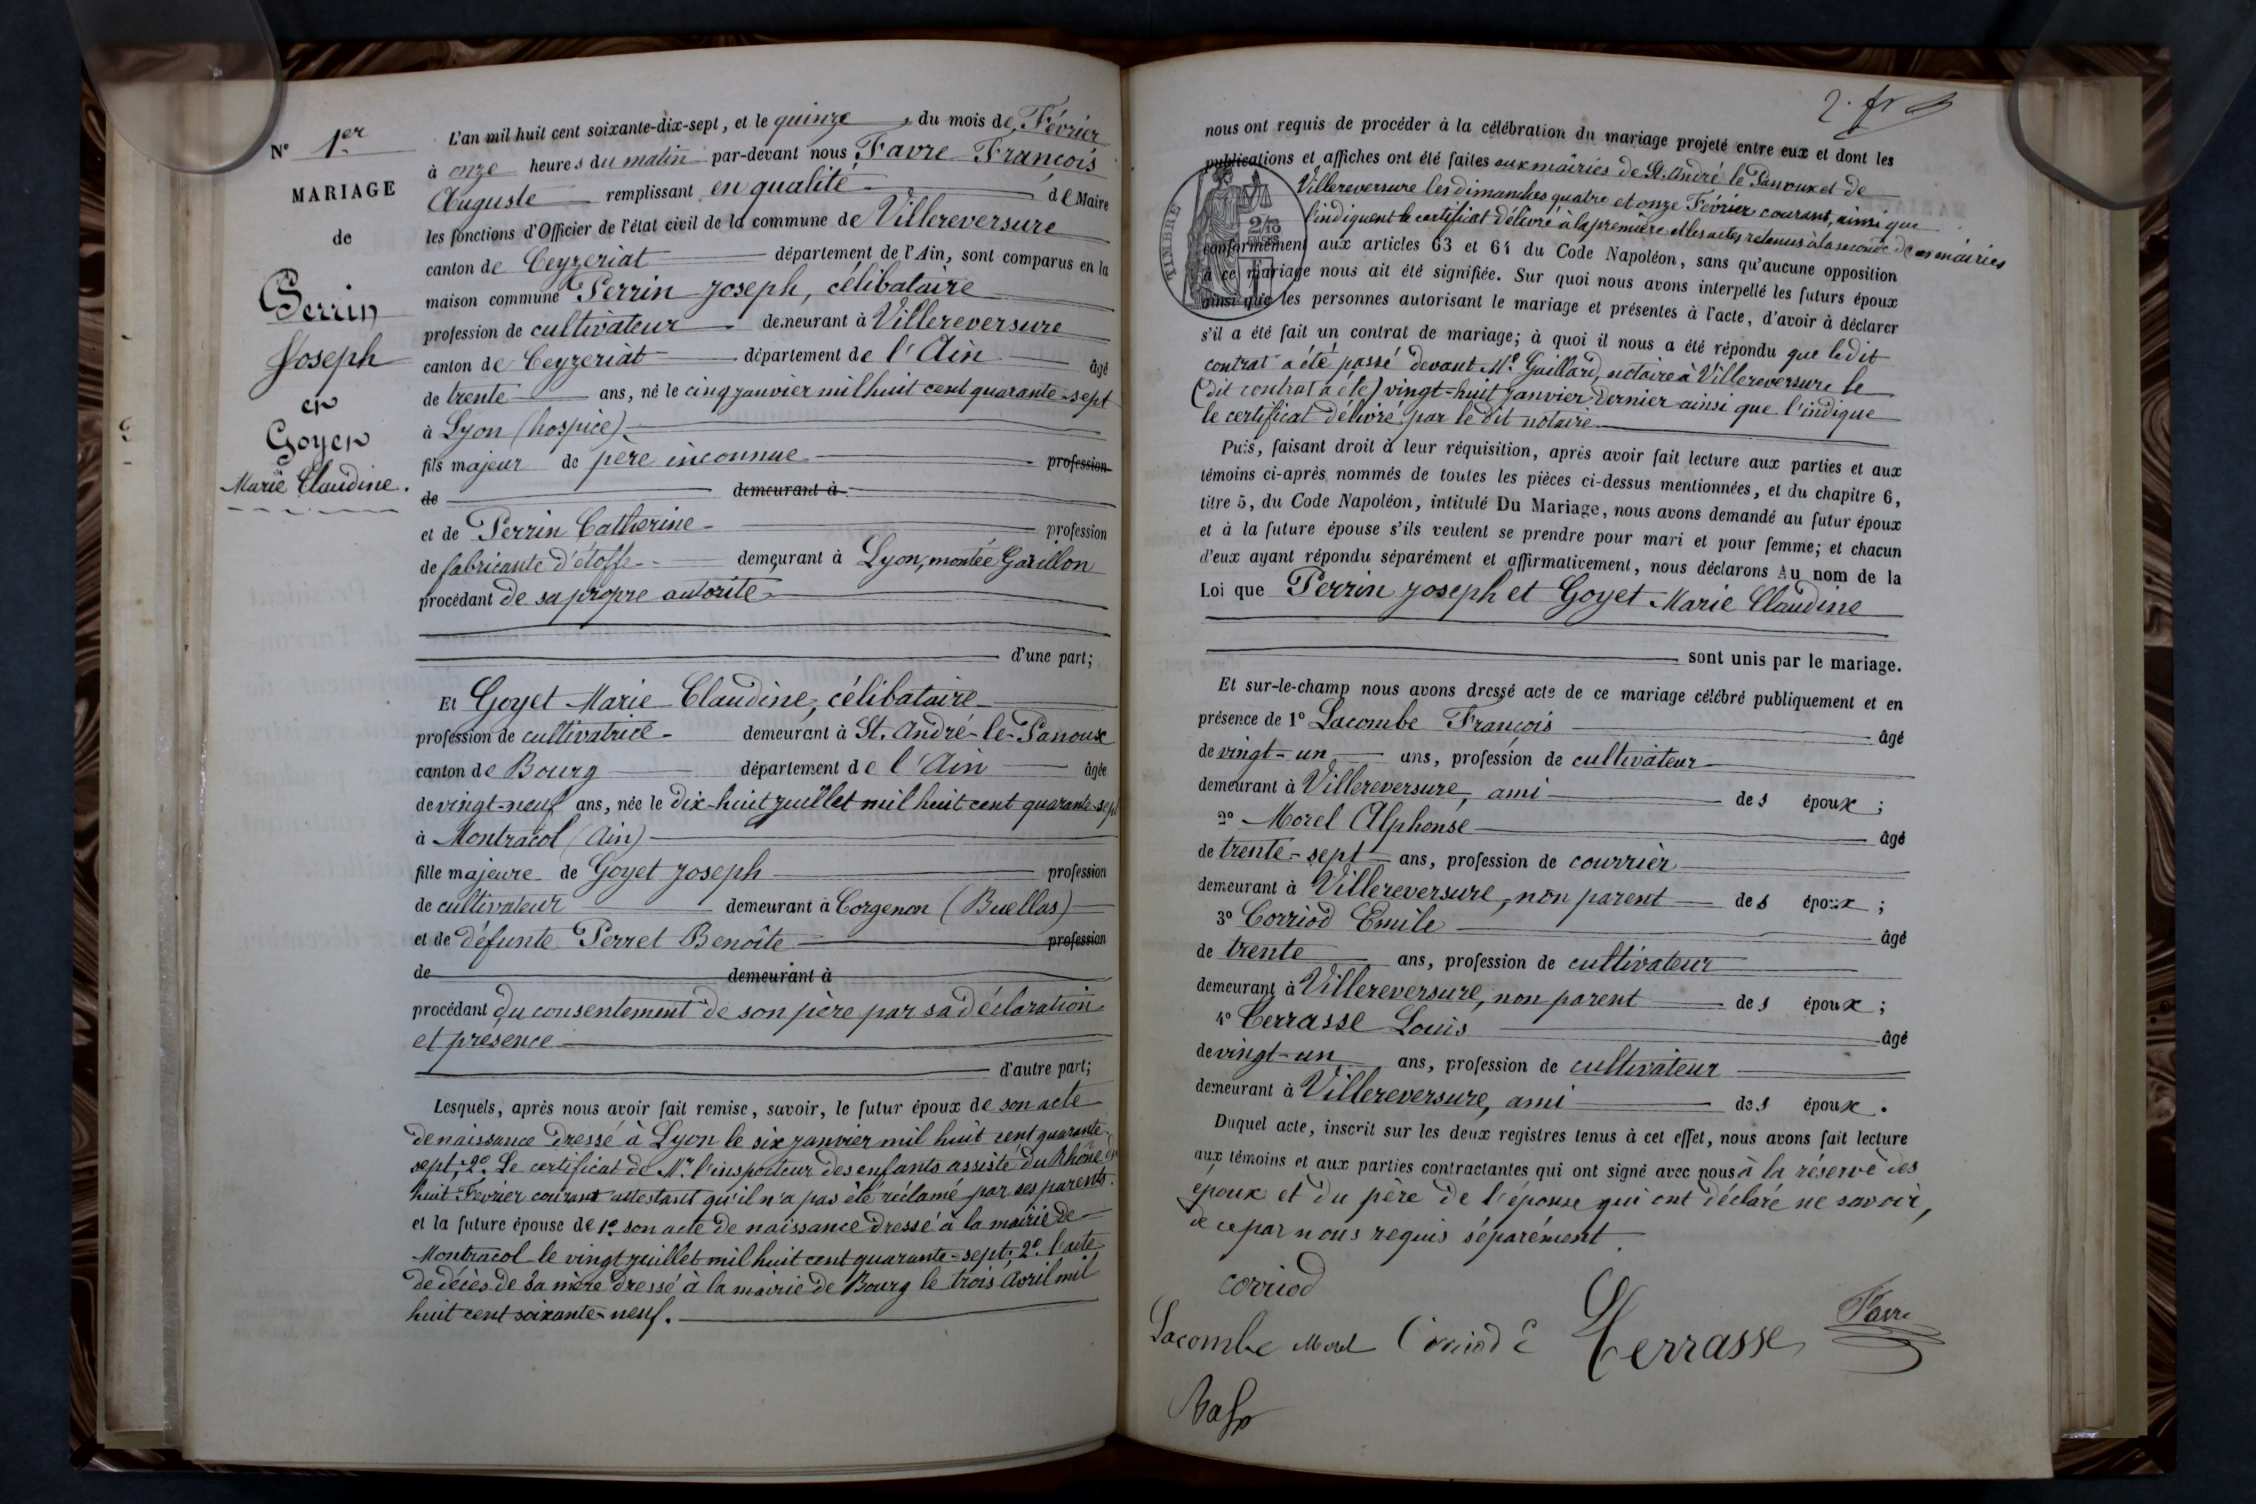 N° 1er
MARIAGE
de
Perrin
Joseph
et
Goyet
Marie Claudine.
L'an mil huit cent soixante-dix-sept, et le quinze du mois de Février
à onze heures du matin par-devant nous Favre François
Auguste remplissant en qualité de Maire
les fonctions d'Officier de l'état civil de la commune de Villereversure
canton de Ceyzeriat département de l'Ain, sont comparus en la
maison commune Perrin Joseph, célibataire
profession de cultivateur demeurant à Villereversure
canton de Ceyzeriat département de l'Ain âgé
de trente ans, né le cinq janvier mil huit cent quarante-sept
à Lyon (hospice).
fils majeur de père inconnue profession
de demeurant à
et de Perrin Catherine profession
de fabricante d'étoffe demeurant à Lyon, montée Garillon
procédant de sa propre autorité
d'une part;
Et Goyet Marie Claudine, célibataire
profession de cultivatrice demeurant à St. André-le-Panoux
canton de Bourg département de l'Ain âgée
de vingt-neuf ans, née le dix-huit juillet mil huit cent quarante-sept
à Montracol (Ain)
fille majeure de Goyet Joseph profession
de cultivateur demeurant à Corgenon (Buellas)
et de défunte Perret Benoîte profession
de demeurant à
procédant du consentement de son père par sa déclaration
et présence
d'autre part;
Lesquels, après nous avoir fait remise, savoir, le futur époux de son acte
de naissance dressé à Lyon le six janvier mil huit cent quarante
sept; 2°. Le certificat de Mr. l'inspecteur des enfants assisté du Rhône
huit Février courant attestant qu'il n'a pas été réclamé par ses parents.
et la future épouse de 1°. son acte de naissance dressé à la mairie de
Montracol le vingt juillet mil huit cent quarante-sept; 2°. l'acte
de décès de sa mère dressé à la mairie de Bourg le trois Avril mil
huit cent soixante-neuf.
2.
nous ont requis de procéder à la célébration du mariage projeté entre eux et dont les
publications et affiches ont été faites aux mairies de St. André le Panoux et de
Villereversure les dimanches quatre et onze Février courant, ainsi que
l'indiquent le certificat délivré à la première et les actes retenus à la seconde de ces mairies
conformément aux articles 63 et 64 du Code Napoléon, sans qu'aucune opposition
à ce mariage nous ait été signifiée. Sur quoi nous avons interpellé les futurs époux
ainsi que les personnes autorisant le mariage et présentes à l'acte, d'avoir à déclarer
TIMBRE
s'il a été fait un contrat de mariage; à quoi il nous a été répondu que le dit
contrat a été passé devant Me. Gaillard, notaire à Villereversure le
(dit contrat a été) vingt-huit janvier dernier ainsi que l'indique
le certificat délivré par le dit notaire
Puis, faisant droit à leur réquisition, après avoir fait lecture aux parties et aux
témoins ci-après nommés de toutes les pièces ci-dessus mentionnées, et du chapitre 6,
titre 5, du Code Napoléon, intitulé Du Mariage, nous avons demandé au futur époux
et à la future épouse s'ils veulent se prendre pour mari et pour femme; et chacun
d'eux ayant répondu séparément et affirmativement, nous déclarons Au nom de la
Loi que Perrin Joseph et Goyet Marie Claudine
sont unis par le mariage.
Et sur-le-champ nous avons dressé acte de ce mariage célébré publiquement et en
présence de 1° Lacombe François âgé
de vingt-un ans, profession de cultivateur
demeurant à Villereversure, ami des époux;
2° Morel Alphonse âgé
de trente-sept ans, profession de courrier
demeurant à Villereversure, non parent des époux;
3° Corriod Emile âgé
de trente ans, profession de cultivateur
demeurant à Villereversure, non parent des époux;
4° Terrasse Louis âgé
de vingt-un ans, profession de cultivateur
demeurant à Villereversure, ami des époux.
Duquel acte, inscrit sur les deux registres tenus à cet effet, nous avons fait lecture
aux témoins et aux parties contractantes qui ont signé avec nous à la réserve des
époux et du père de l'épouse qui ont déclaré ne savoir,
de ce par nous requis séparément.
corriod
Lacombe Morel Corriod E Terrasse Favre